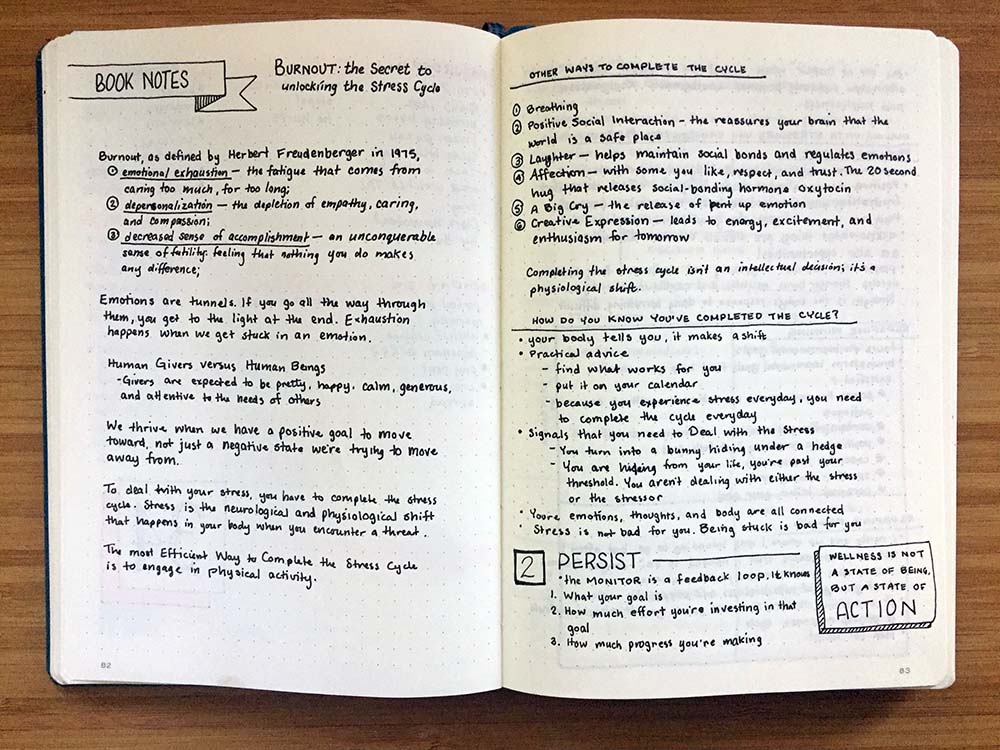 BOOK NOTES
BURNOUT: the Secret to
unlocking the Stress Cycle
Burnout, as defined by Herbert Freudenberger in 1975,
① emotional exhaustion — the fatigue that comes from
caring too much, for too long;
② depersonalization — the depletion of empathy, caring,
and compassion;
③ decreased sense of accomplishment — an unconquerable
sense of futility: feeling that nothing you do makes
any difference;
Emotions are tunnels. If you go all the way through
them, you get to the light at the end. Exhaustion
happens when we get stuck in an emotion.
Human Givers versus Human Bengs
- Givers are expected to be pretty, happy, calm, generous,
and attentive to the needs of others
We thrive when we have a positive goal to move
toward, not just a negative state we're trying to move
away from.
To deal with your stress, you have to complete the stress
cycle. Stress is the neurological and physiological shift
that happens in your body when you encounter a threat.
The most Efficient Way to Complete the Stress Cycle
is to engage in physical activity.
82
OTHER WAYS TO COMPLETE THE CYCLE
① Breathing
② Positive Social Interaction — the reassures your brain that the
world is a safe place
③ Laughter — helps maintain social bonds and regulates emotions
④ Affection — with some you like, respect, and trust. The 20 second
hug that releases social-bonding hormone oxytocin
⑤ A Big Cry — the release of pent up emotion
⑥ Creative Expression — leads to energy, excitement, and
enthusiasm for tomorrow
Completing the stress cycle isn't an intellectual decision; it's a
physiological shift.
HOW DO YOU KNOW YOU'VE COMPLETED THE CYCLE?
• your body tells you, it makes a shift
• Practical advice
- find what works for you
- put it on your calendar
- because you experience stress everyday, you need
to complete the cycle everyday
• Signals that you need to Deal with the Stress
- You turn into a bunny hiding under a hedge
- You are hiding from your life, you're past your
threshold. You aren't dealing with either the stress
or the stressor
• Youre emotions, thoughts, and body are all connected
• Stress is not bad for you. Being stuck is bad for you
2 PERSIST
• the MONITOR is a feedback loop. It knows
1. What your goal is
2. How much effort you're investing in that
goal
3. How much progress you're making
WELLNESS IS NOT
A STATE OF BEING,
BUT A STATE OF
ACTION
83